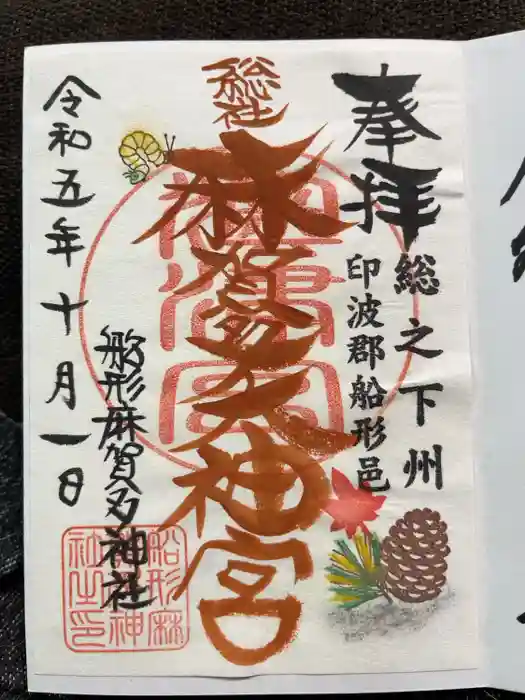 奉拝
総之下州
印波郡船形邑
総社
麻賀多大神宮
船形麻賀多神社
令和五年十月一日
船形麻
神
社之印